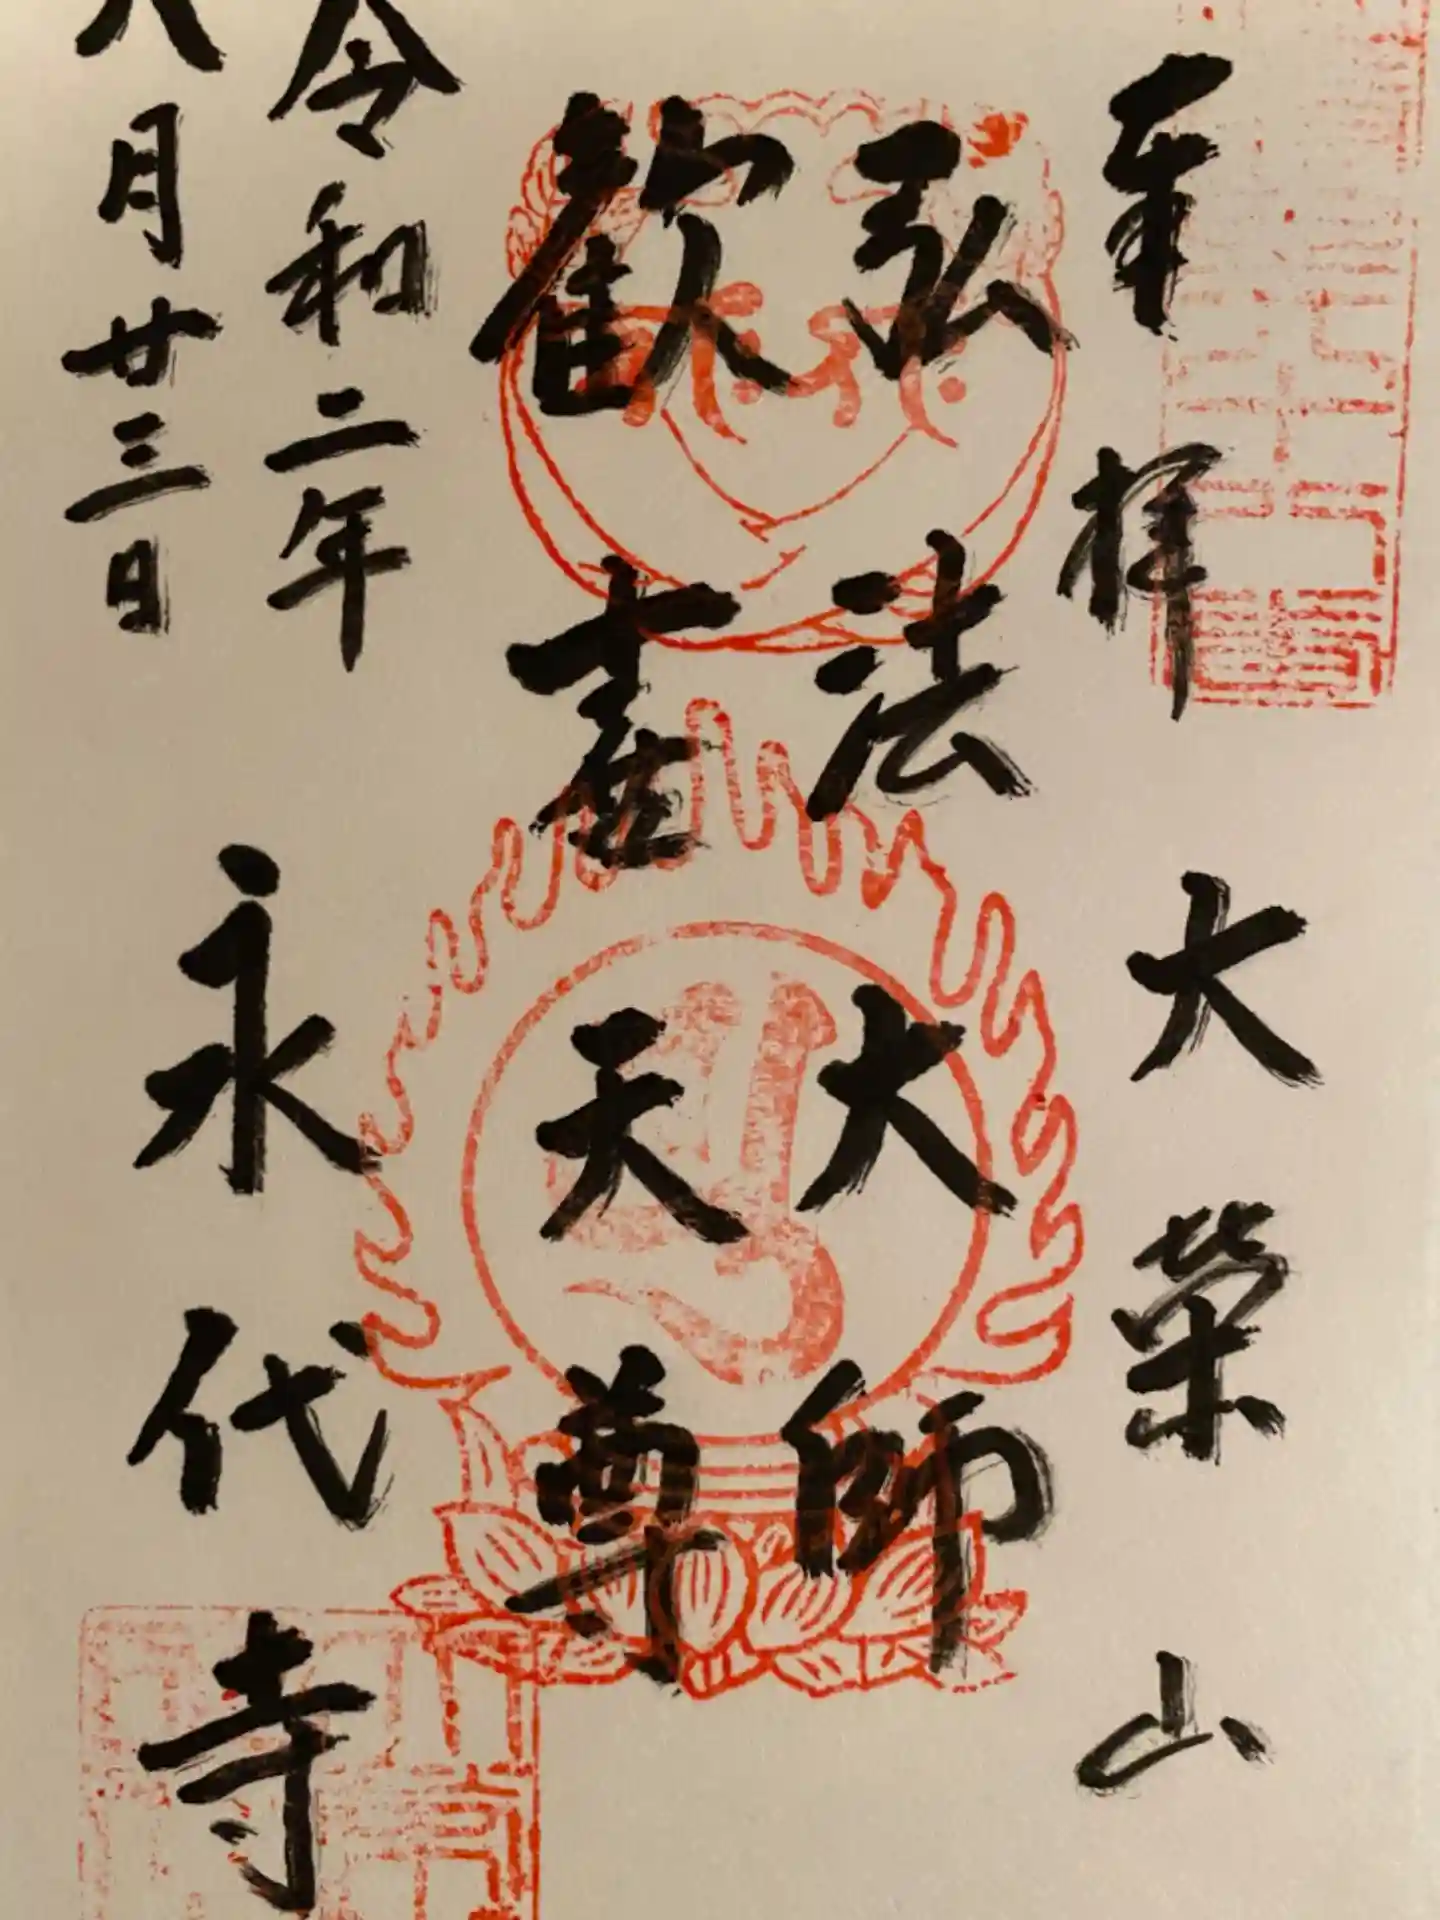 奉拝 大榮山
弘法大師
歓喜天尊
永代寺
令和二年
八月廿三日